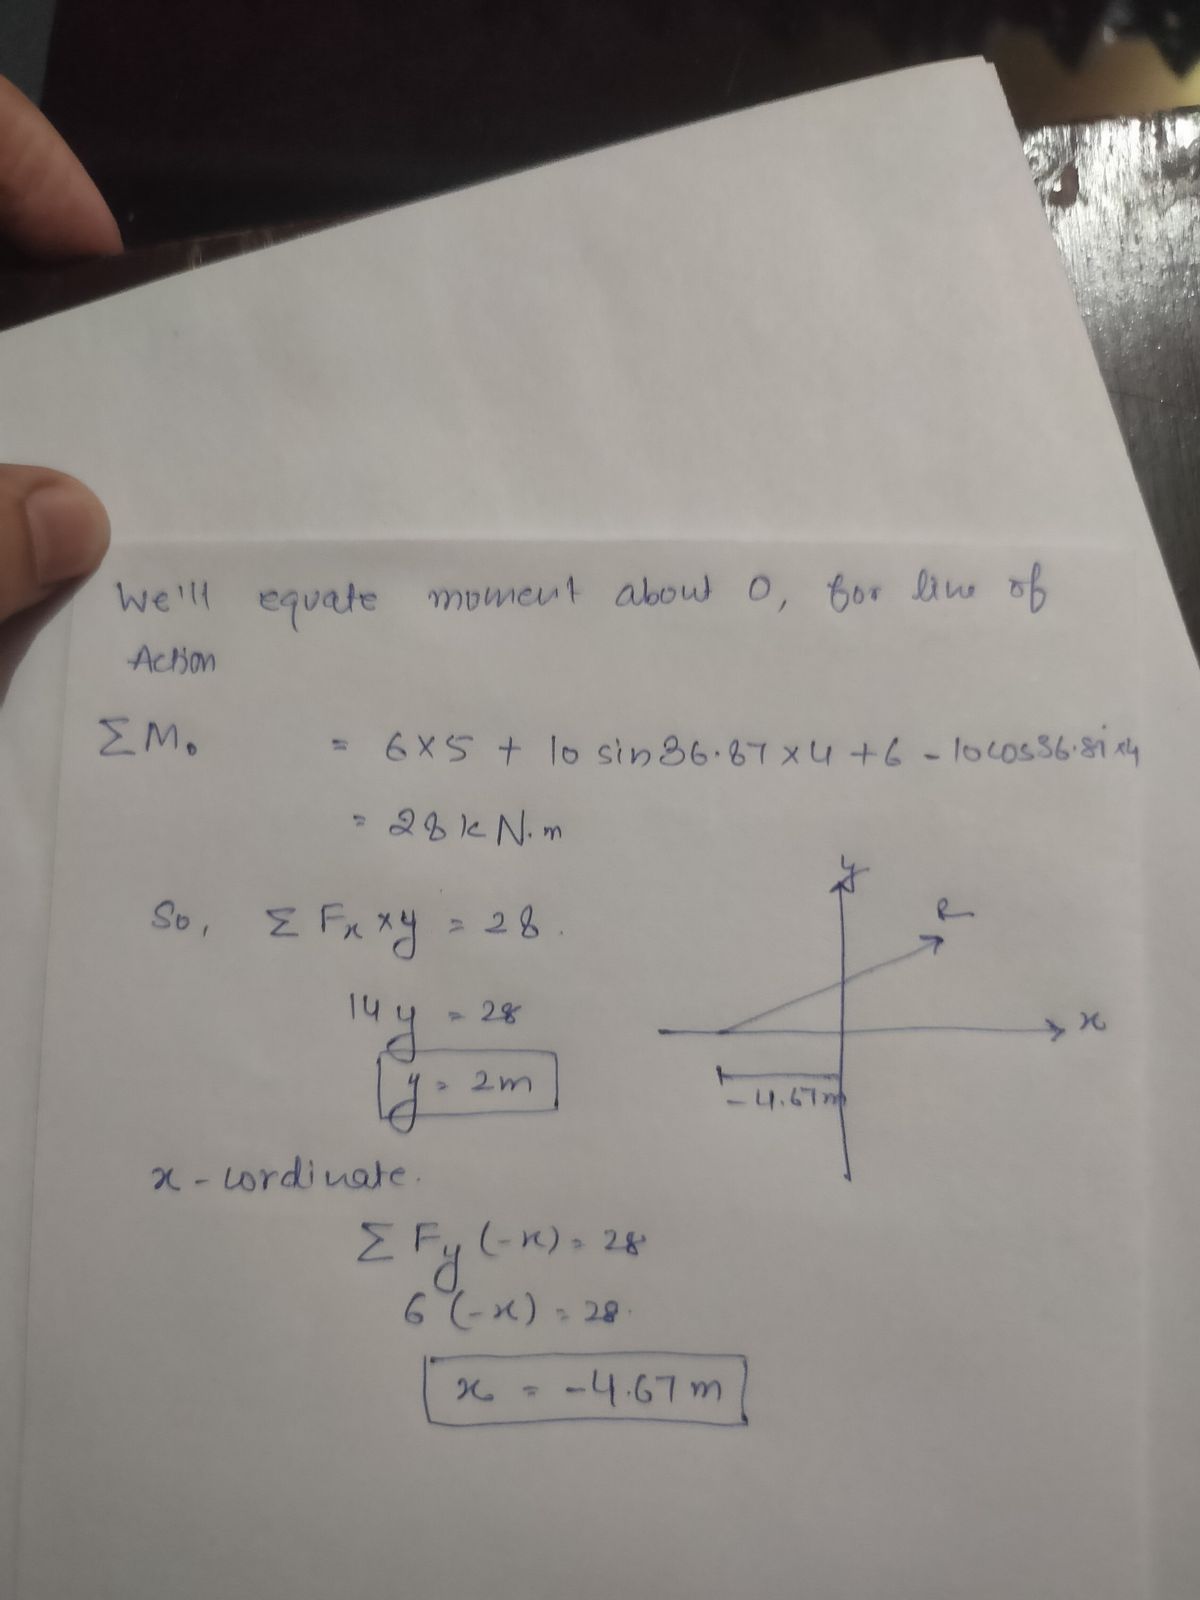 We'll equate moment about O, for line of
Action
ΣM₀ = 6×5 + 10 sin36.87×4+6 - 10cos36.87×4
= 28kN.m
So, ΣFₓ×y = 28.
14y = 28
y = 2m
x-cordinate.
ΣFy(-x) = 28
6(-x) = 28.
x = -4.67m
y
R
x
-4.67m